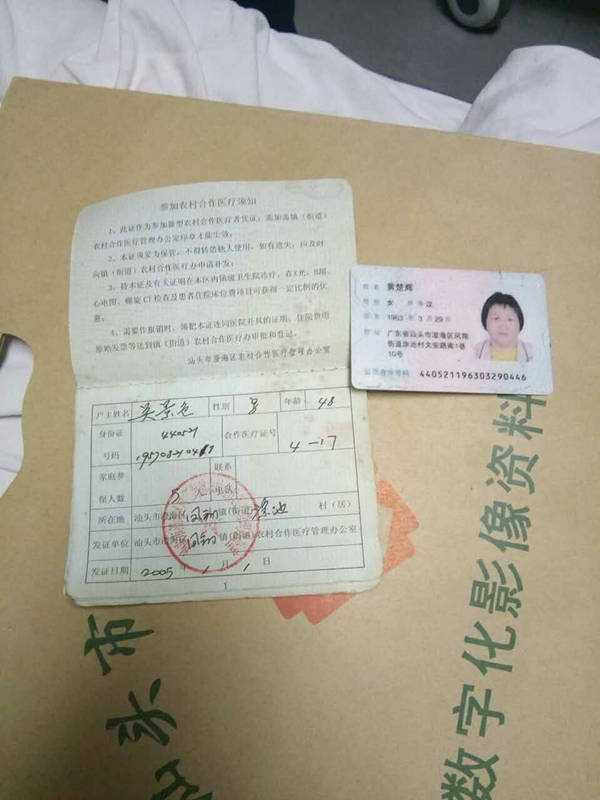 参加农村合作医疗须知
1、此证作为参加新型农村合作医疗者凭证，需加盖镇（街道）
农村合作医疗管理办公室印章才能生效；
2、本证须妥为保管，不得转借他人使用，如有遗失，应及时
向镇（街道）农村合作医疗办申请补发；
3、持本证及有关证明在本区内镇级卫生院诊疗，在X光、B超、
心电图、螺旋CT检查及患者住院床位费项目可获得一定比例的优
惠；
4、需要作报销时，须把本证连同医院开具的证明、住院费用
原始发票等送到镇（街道）农村合作医疗办审批和登记。
汕头市澄海区农村合作医疗管理办公室
户主姓名 吴景色 性别 男 年龄 48
身份证 440521
号码
合作医疗证号 4-17
家庭参 联系
保人数 5 人 电话
所在地 汕头市澄海区 凤翔 镇(街道) 涂池 村（居）
发证单位 汕头市澄海区 凤翔 镇(街道)农村合作医疗管理办公室
发证日期 2005年 1 月 1 日
1
姓名 黄楚辉
性别 女 民族 汉
出生 1963 年 3 月 29 日
住址 广东省汕头市澄海区凤翔
街道涂池村文安路南1巷
10号
公民身份号码 440521196303290446
汕头市
数字化影像资料